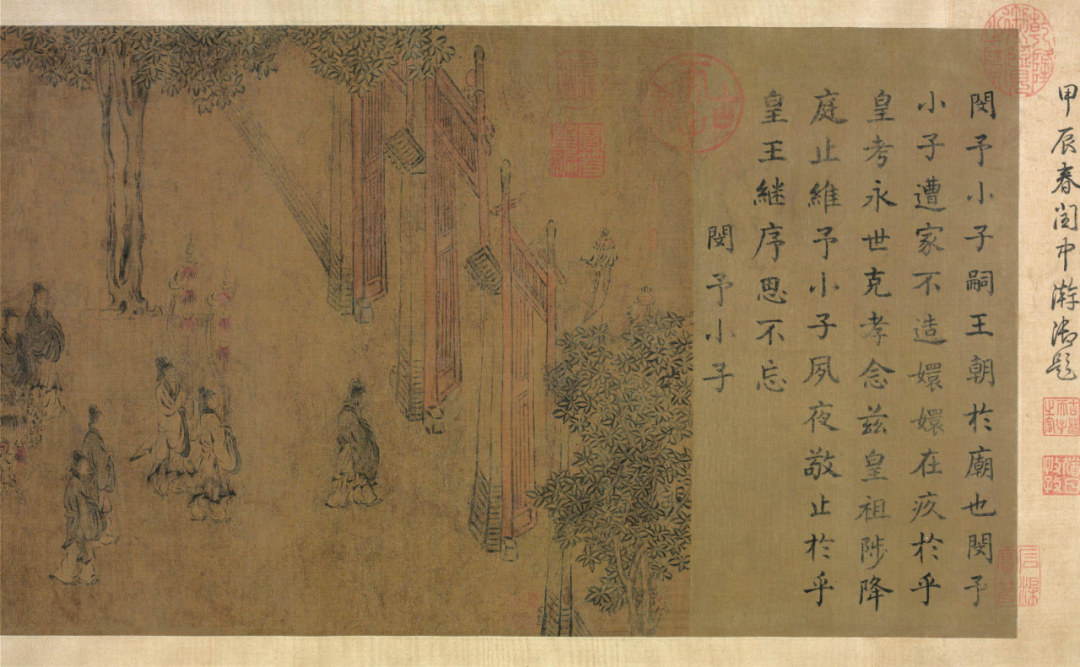 甲辰春閏中澣御題
閔予小子嗣王朝於廟也閔予
小子遭家不造嬛嬛在疚於乎
皇考永世克孝念茲皇祖陟降
庭止維予小子夙夜敬止於乎
皇王継序思不忘
閔予小子